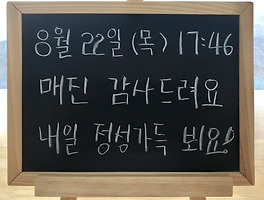 8월 22일 (목) 17:46
매진 감사드려요
내일 정성가득 뵈요!